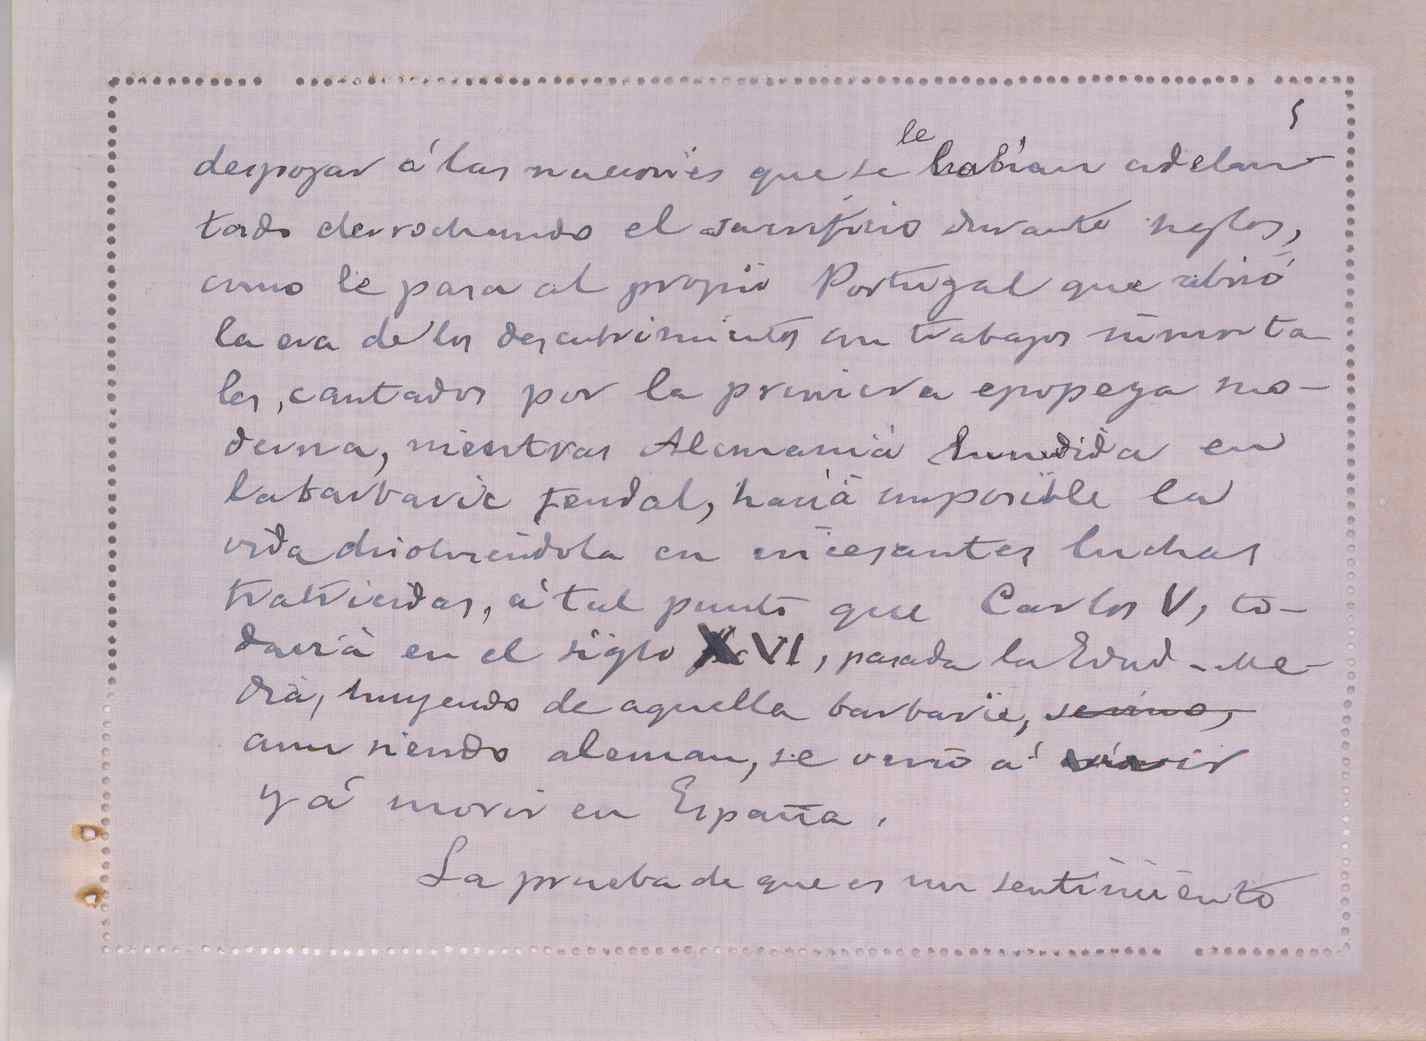 5
le
despojar á las naciones que se habían adelan-
tado derrochando el sacrificio durante siglos,
como le pasa al propio Portugal que abrió
la era de los descubrimientos con trabajos inmorta
les, cantados por la primera epopeya mo-
derna, mientras Alemania hundida en
la barbarie feudal, hacía imposible la
vida disolviéndola en incesantes luchas
fratricidas, á tal punto que Carlos V, to-
davía en el siglo XVI, pasada la Edad-Me-
dia, huyendo de aquella barbarie,
aun siendo aleman, se vino á vivir
y á morir en España.
La prueba de que es un sentimiento